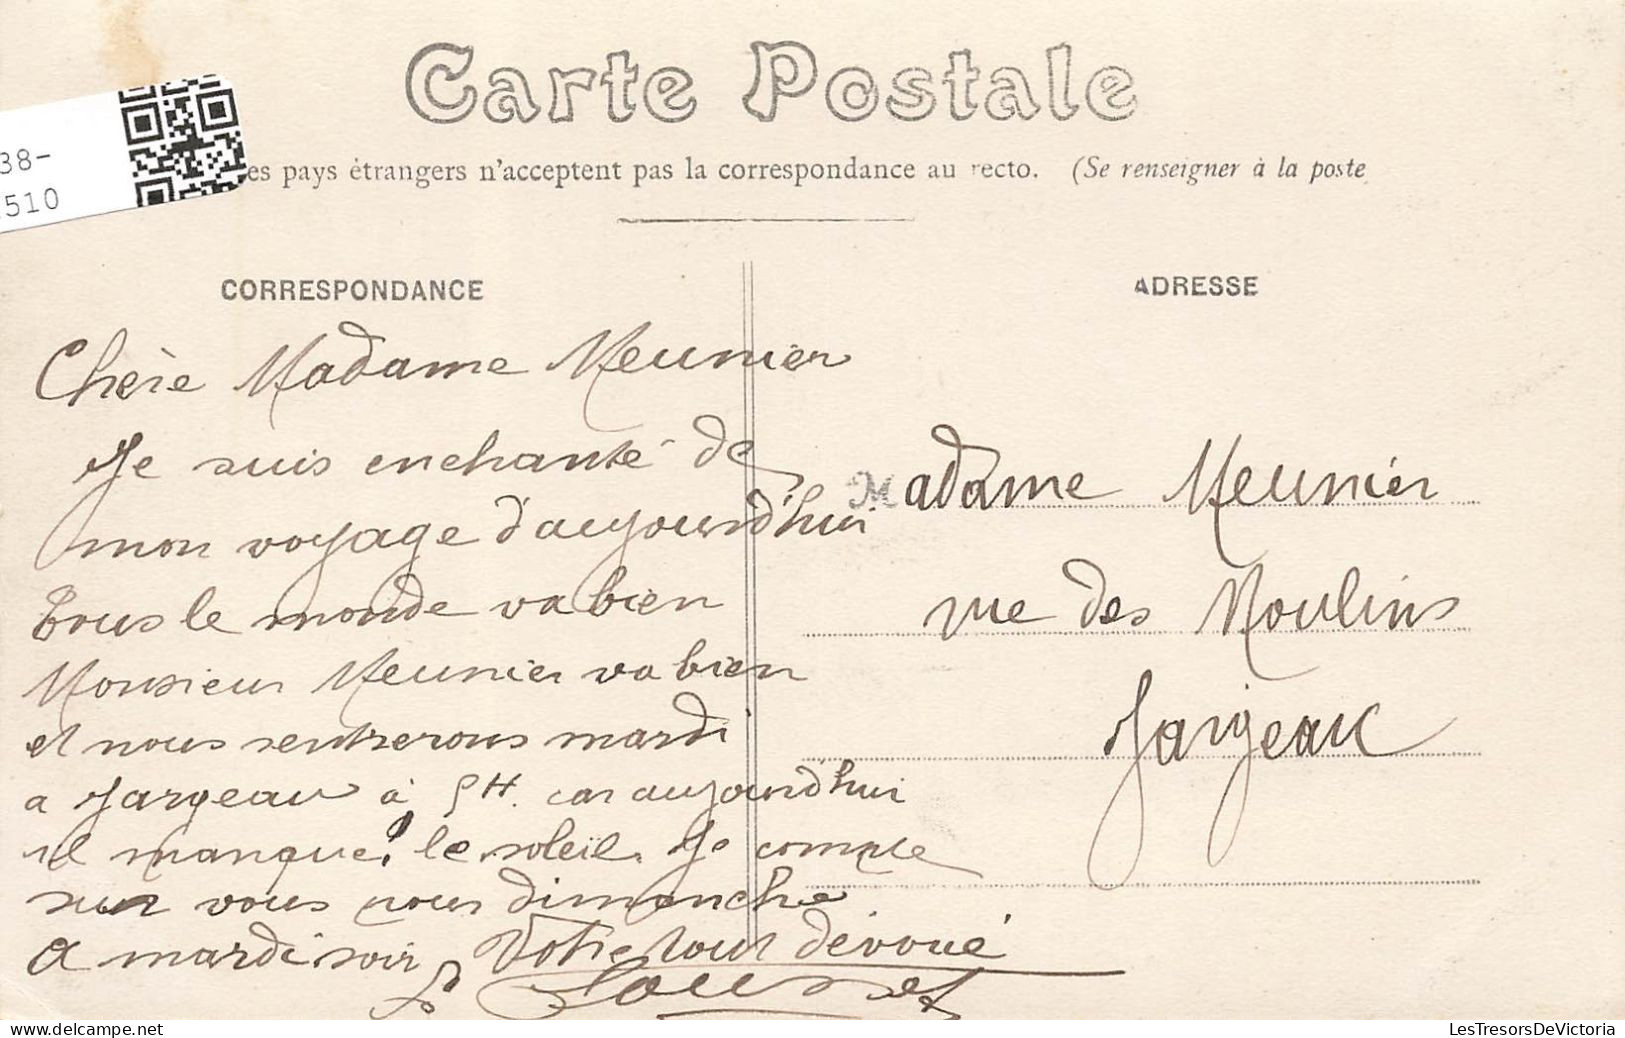 Carte Postale
38-
510
es pays étrangers n'acceptent pas la correspondance au recto. (Se renseigner à la poste
CORRESPONDANCE
Chère Madame Meunier
Je suis enchanté de
mon voyage d'aujourd'hui
Tous le monde va bien
Monsieur Meunier va bien
et nous rentrerons mardi
a Jargeau à 5H. car aujourd'hui
il manque le soleil. Je compte
sur vous pour dimanche
A mardi soir Votre tout dévoué
ADRESSE
Madame Meunier
rue des Moulins
Jargeau
LesTresorsDeVictoria